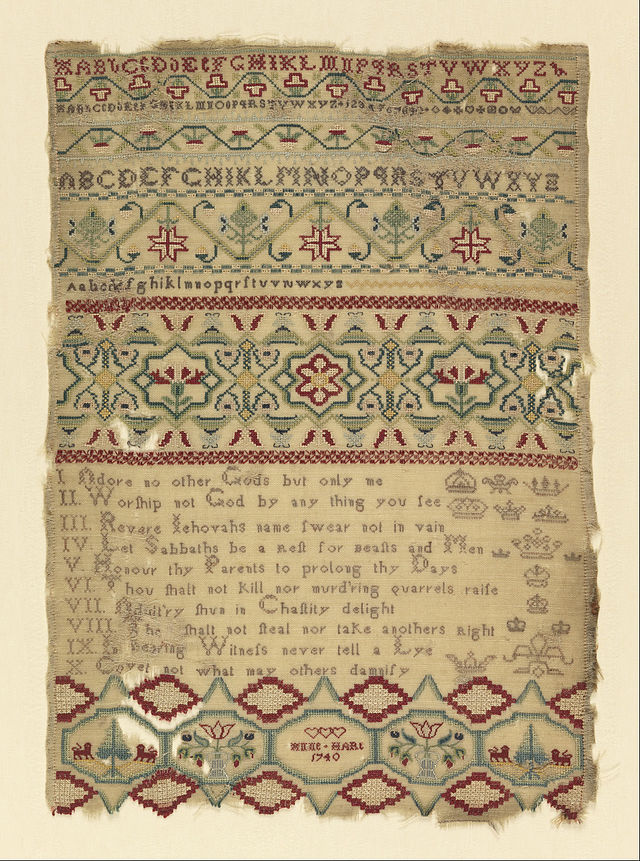 A A B b C c D d E E f F G H I K L M N P P q R S T V W X Y Z
A B C D E f G H I K L M N O P q R S T V W X Y Z
A a b c d e f g h i k l m n o p q r ſ t u v w x y z
I Adore no other Gods but only me
II. Worſhip not God by any thing you ſee
III. Revere Iehovahs name ſwear not in vain
IV. Let Sabbaths be a Reſt for Beaſts and Men
V. Honour thy Parents to prolong thy Days
VI. Thou ſhalt not kill nor murd'ring quarrels raiſe
VII. Adult'ry ſhun in Chaſtity delight
VIII. ſhalt not ſteal nor take anothers Right
IX. bearing Witneſs never tell a Lye
X. Covet not what may others damnify
ANNE HARL
1740